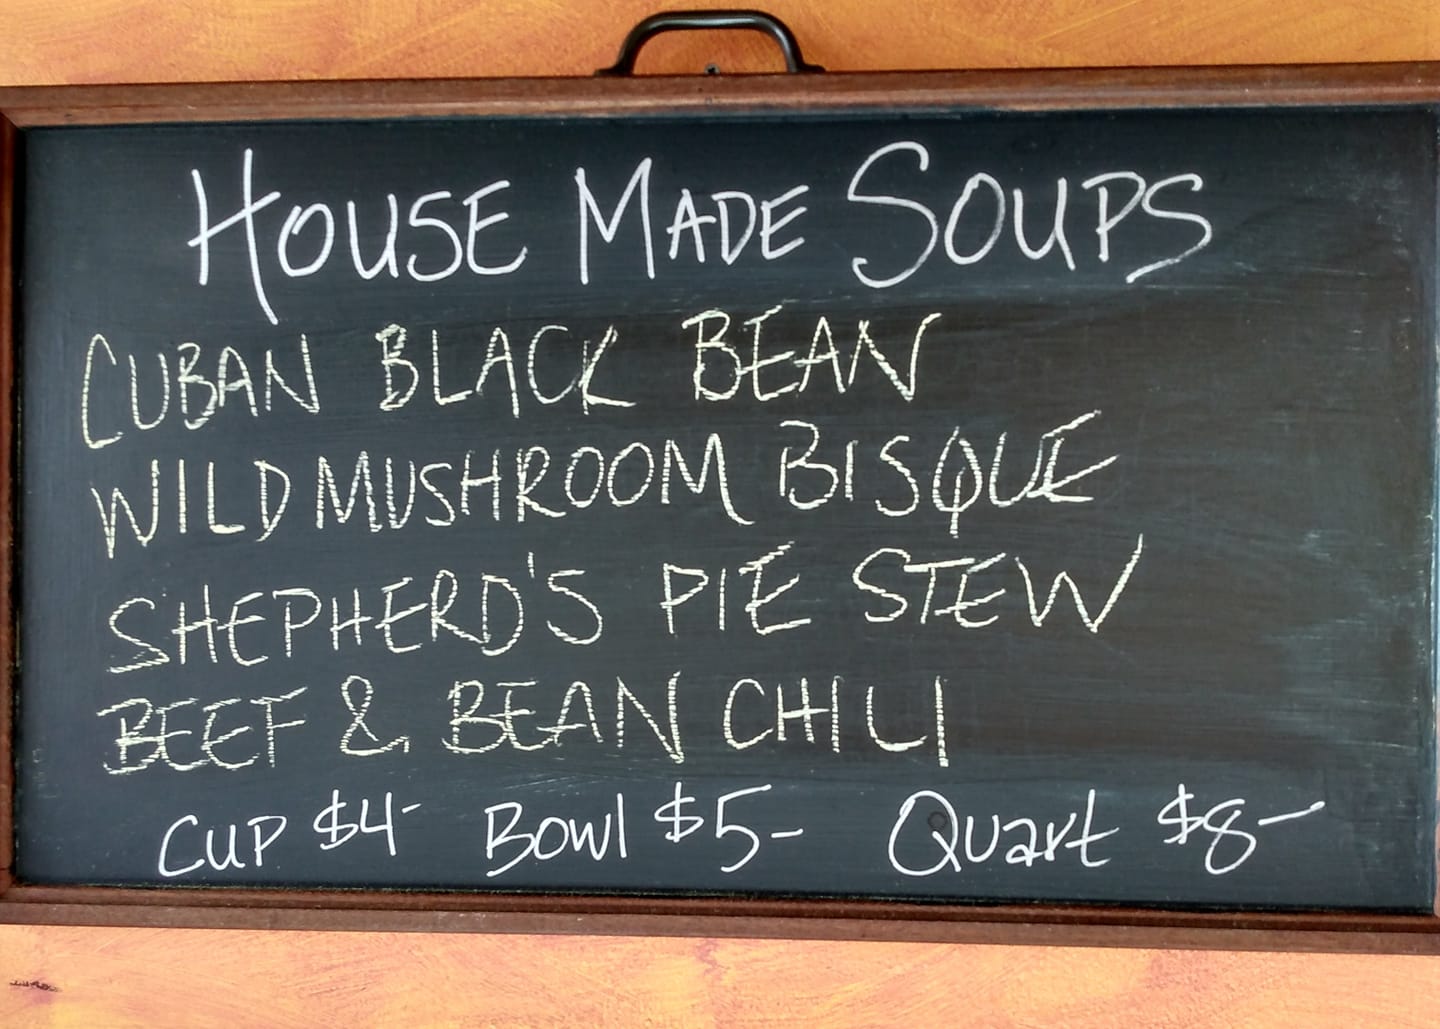 HOUSE MADE SOUPS
CUBAN BLACK BEAN
WILD MUSHROOM BISQUE
SHEPHERD'S PIE STEW
BEEF & BEAN CHILI
CUP $4- Bowl $5- Quart $8-